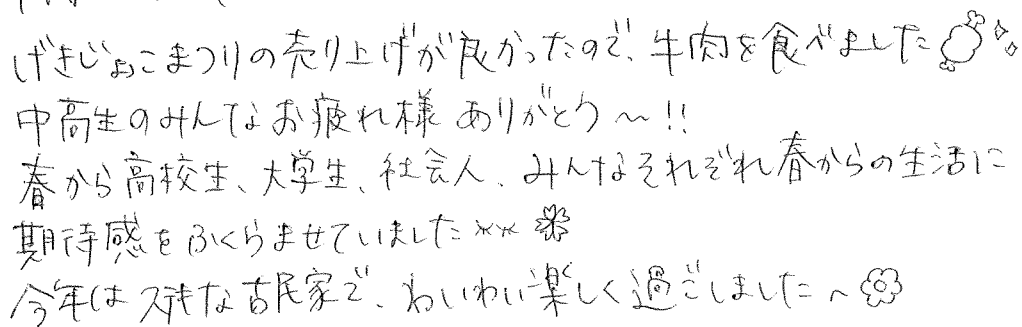 げきじょっこまつりの売り上げが良かったので、牛肉を食べました
中高生のみんなお疲れ様 ありがとう〜!!
春から高校生、大学生、社会人、みんなそれぞれ春からの生活に
期待感をふくらませていました
今年はステキな古民家で、わいわい楽しく過ごしました〜